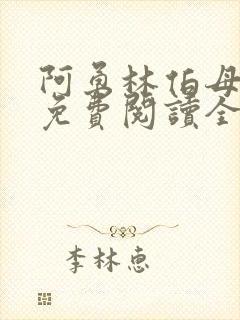 阿勇林伯母
免費閱讀全
李林惠